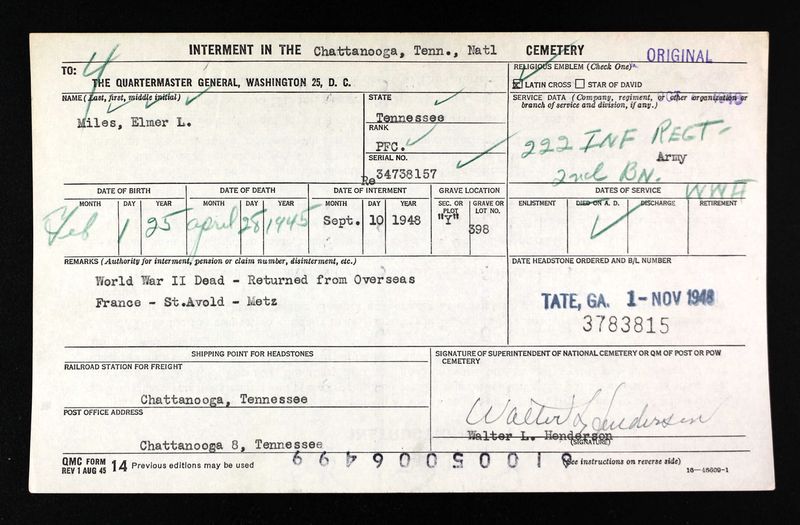 INTERMENT IN THE Chattanooga, Tenn., Natl CEMETERY
ORIGINAL
4
TO:
THE QUARTERMASTER GENERAL, WASHINGTON 25, D. C.
RELIGIOUS EMBLEM (Check One)
LATIN CROSS STAR OF DAVID
NAME (Last, first, middle initial)
Miles, Elmer L.
STATE
Tennessee
RANK
PFC.
SERIAL NO.
Re 34738157
SERVICE DATA (Company, regiment, or other organization or branch of service and division, if any.)
222 INF REGT-
Army
2nd BN.
WWII
DATE OF BIRTH
MONTH DAY YEAR
Feb 1 25
DATE OF DEATH
MONTH DAY YEAR
april 28 1945
DATE OF INTERMENT
MONTH DAY YEAR
Sept. 10 1948
GRAVE LOCATION
SEC. OR PLOT
"Y"
GRAVE OR LOT NO.
398
DATES OF SERVICE
ENLISTMENT DIED ON A. D. DISCHARGE RETIREMENT
REMARKS (Authority for interment, pension or claim number, disinterment, etc.)
World War II Dead - Returned from Overseas
France - St.Avold - Metz
DATE HEADSTONE ORDERED AND B/L NUMBER
TATE, GA. 1-NOV 1948
3783815
SHIPPING POINT FOR HEADSTONES
RAILROAD STATION FOR FREIGHT
Chattanooga, Tennessee
POST OFFICE ADDRESS
Chattanooga 8, Tennessee
SIGNATURE OF SUPERINTENDENT OF NATIONAL CEMETERY OR QM OF POST OR POW CEMETERY
Walter L. Henderson
Walter L. Henderson
(SIGNATURE)
QMC FORM
REV 1 AUG 45 14 Previous editions may be used
810050064 99
(See instructions on reverse side)
16-45609-1